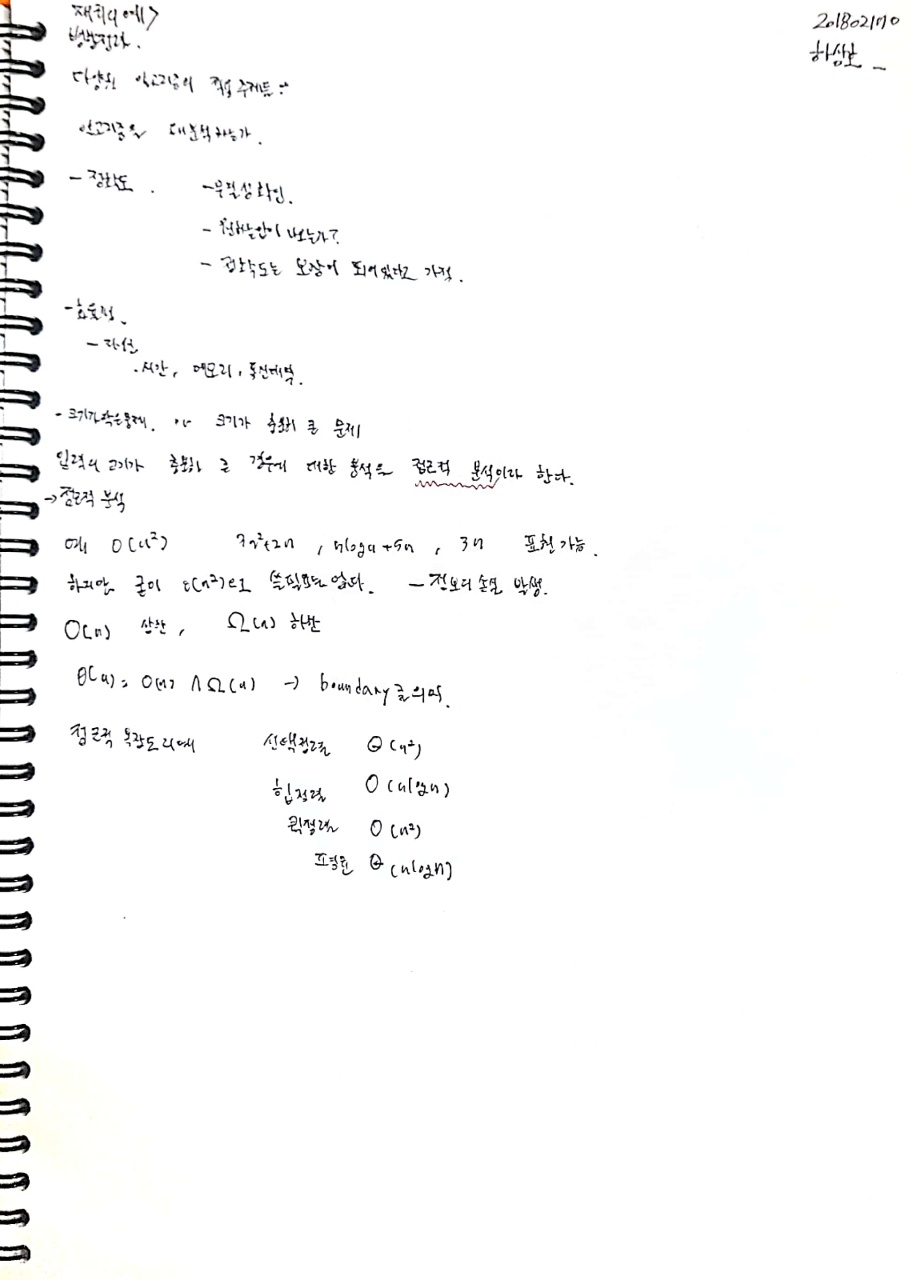 201802170
하상호
재귀의 예>
병합정렬.
다양한 알고리즘의 적용 주제들
알고리즘을 왜 분석하는가.
- 정확도. - 무결성 확인.
- 원하는 답이 나오는가?
- 정확도는 보장이 되어있다고 가정.
- 효율성.
- 자원
. 시간, 메모리, 통신대역.
- 크기가 작은 문제. 크기가 충분히 큰 문제
입력의 크기가 충분히 큰 경우에 대한 분석을 점근적 분석이라 한다.
→ 점근적 분석
예 O(n²) 3n²+2n, nlogn+5n, 3n 표현 가능.
하지만 굳이 쓸 필요는 없다. - 정보의 손실 발생.
O(n) 상한, Ω(n) 하한
Θ(n) = O(n) ∧ Ω(n) → boundary를 의미.
점근적 복잡도의 예 선택정렬 Θ(n²)
힙정렬 O(nlogn)
퀵정렬 O(n²)
Θ(nlogn)